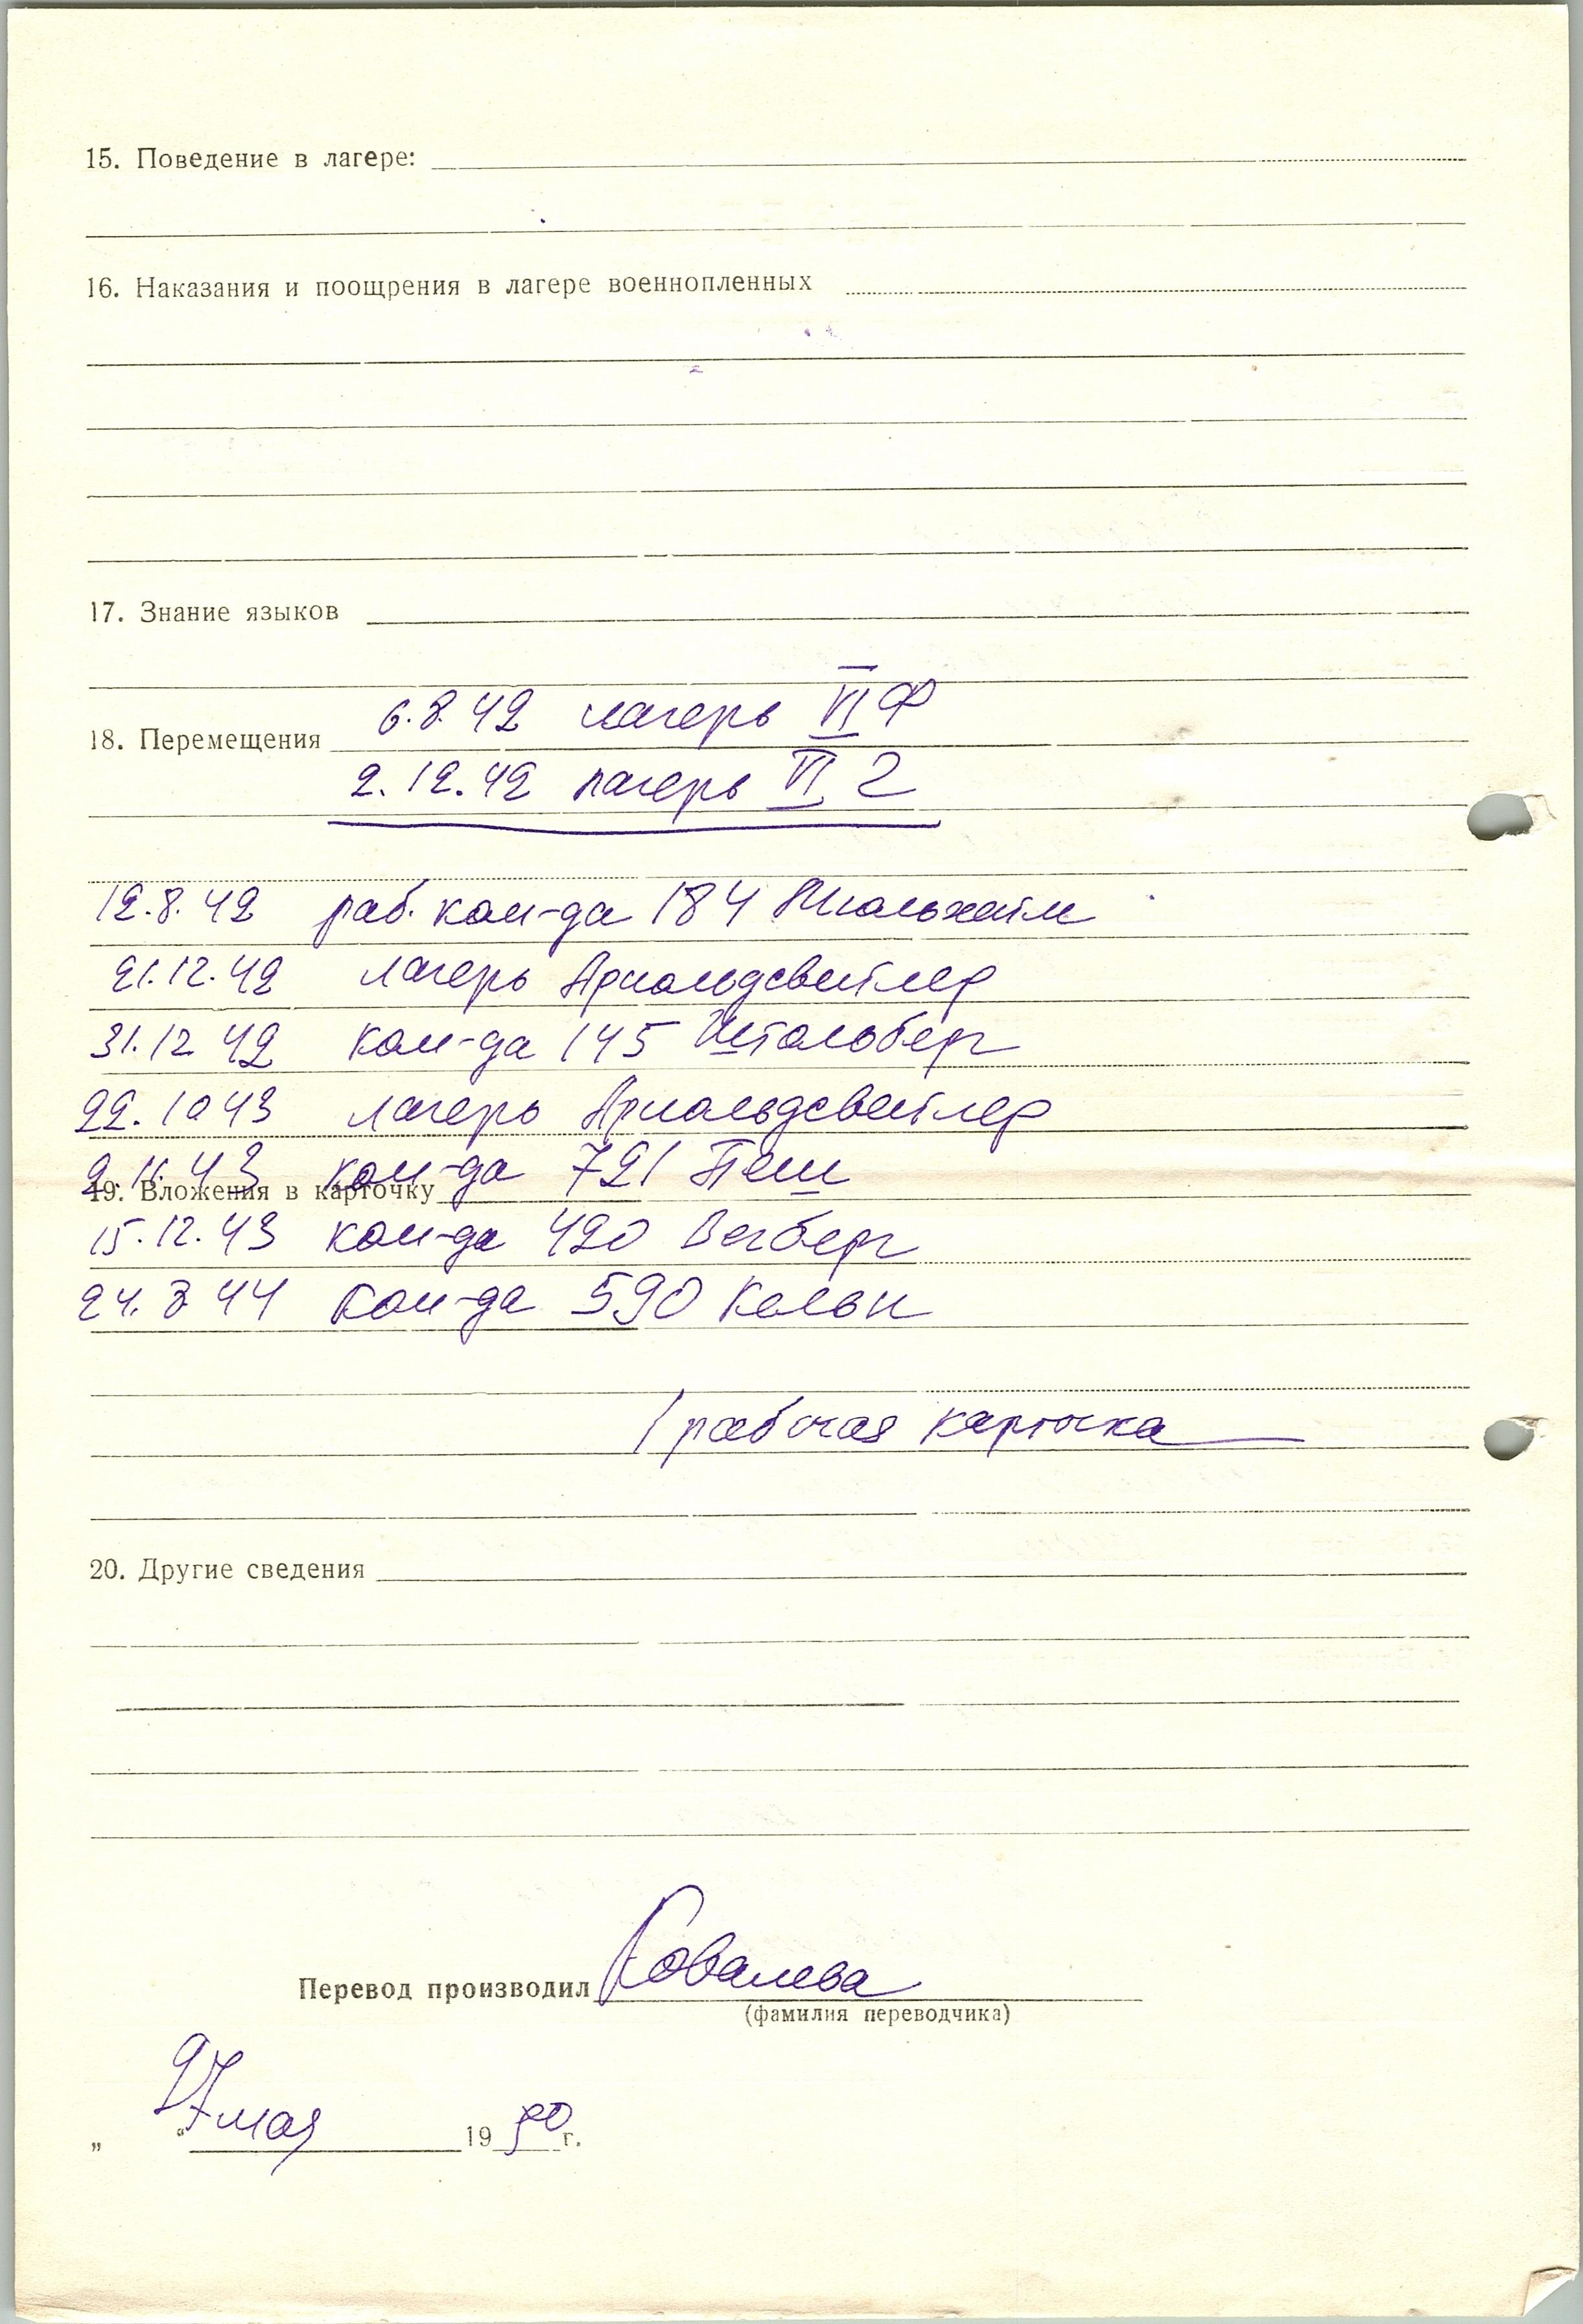 15. Поведение в лагере:
16. Наказания и поощрения в лагере военнопленных
17. Знание языков
6.8.42 лагерь VI Ф
18. Перемещения
2.12.42 лагерь VI Г
12.8.42 раб. ком-да 184
21.12.42 лагерь Арнольдсвейлер
31.12 42 ком-да 145 Штольберг
22.10 43 лагерь Арнольдсвейлер
2.11.43 ком-да 721 Пеш
19. Вложения в карточку
15.12.43 ком-да 420 Вегберг
24.3 44 ком-да 590 Кельн
1 рабочая карточка
20. Другие сведения
Перевод производил Ковалева
(фамилия переводчика)
„27“ мая 1950 г.